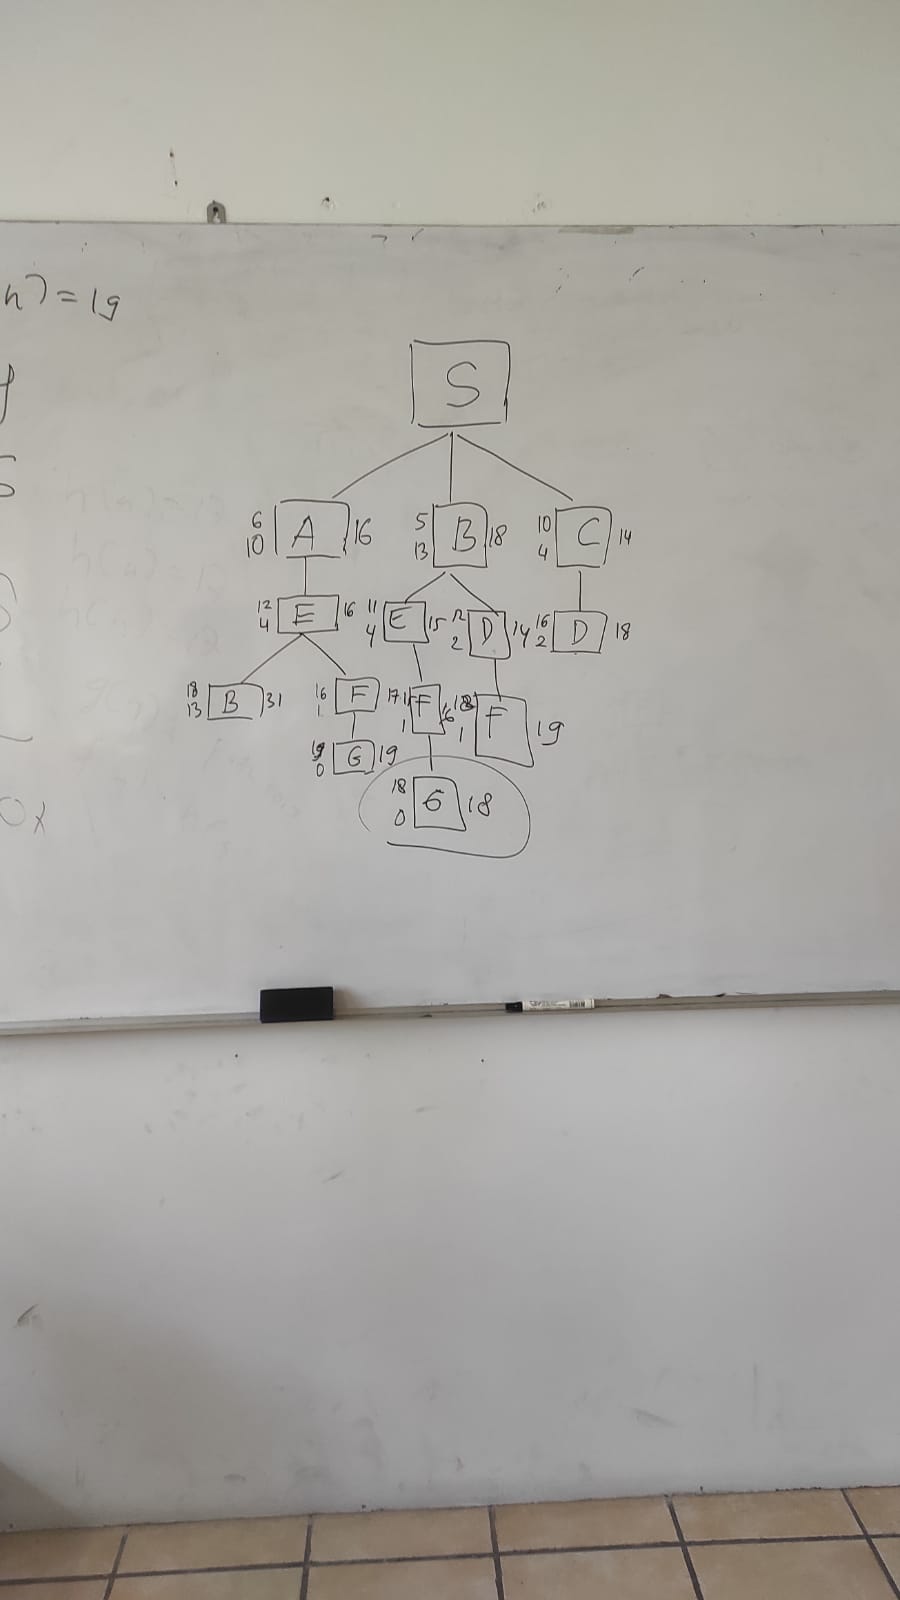 n) = 19
S
6
10
A
16
5
13
B
18
10
4
C
14
12
4
E
16
11
4
E
15
12
2
D
14
16
2
D
18
18
13
B
31
16
1
F
17
15
1
F
16
18
1
F
19
19
0
G
19
18
0
G
18